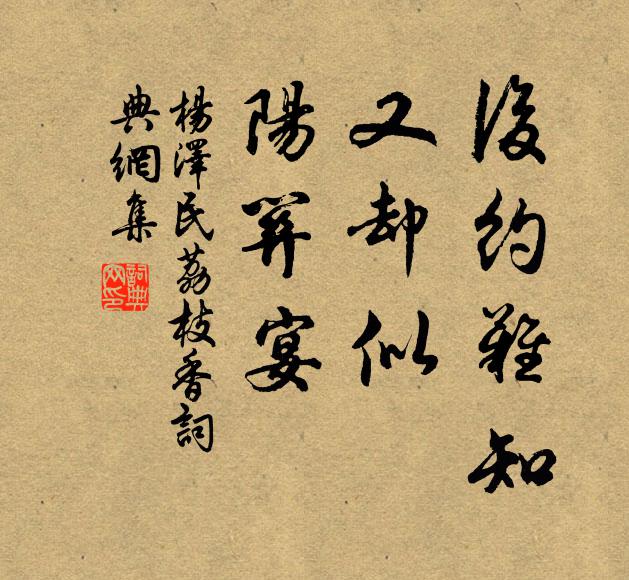 後約難知
又却似
陽羡宴
楊澤民荔枝香詞
典網集
詞典
网印